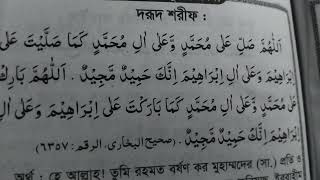 দরূদ শরীফ :
اَللّٰهُمَّ صَلِّ عَلٰى مُحَمَّدٍ وَّعَلٰى اٰلِ مُحَمَّدٍ كَمَا صَلَّيْتَ عَلٰى
اِبْرَاهِيْمَ وَعَلٰى اٰلِ اِبْرَاهِيْمَ اِنَّكَ حَمِيْدٌ مَّجِيْدٌ . اَللّٰهُمَّ بَارِكْ
عَلٰى مُحَمَّدٍ وَّعَلٰى اٰلِ مُحَمَّدٍ كَمَا بَارَكْتَ عَلٰى اِبْرَاهِيْمَ وَعَلٰى اٰلِ
اِبْرَاهِيْمَ اِنَّكَ حَمِيْدٌ مَّجِيْدٌ. (صحيح البخارى، الرقم: ٦٣٥٧)
অর্থ : হে আল্লাহ! তুমি রহমত বর্ষণ কর মুহাম্মদের (সা.) প্রতি ও